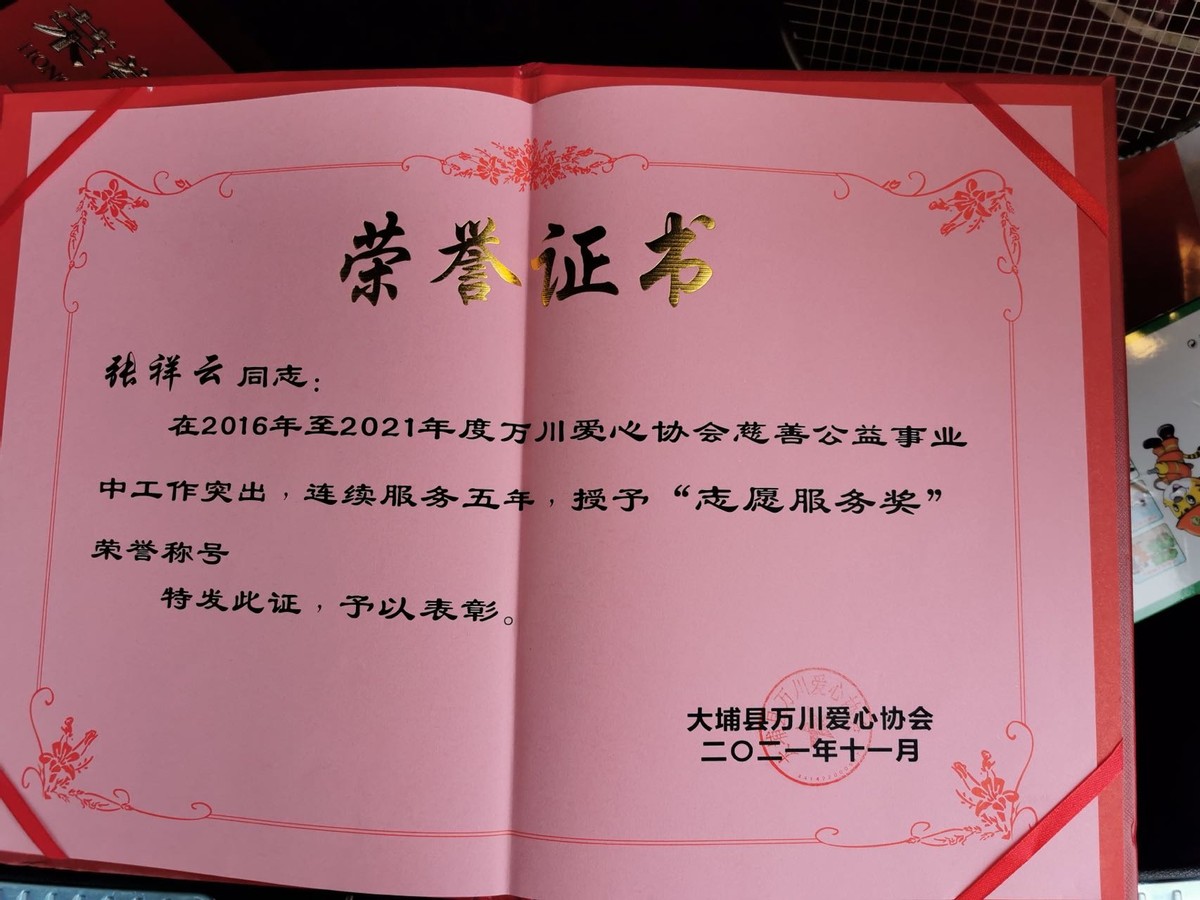 荣誉
HONG
荣誉证书
张祥云同志：
在2016年至2021年度万川爱心协会慈善公益事业
中工作突出，连续服务五年，授予“志愿服务奖”
荣誉称号
特发此证，予以表彰。
大埔县万川爱心协会
二〇二一年十一月